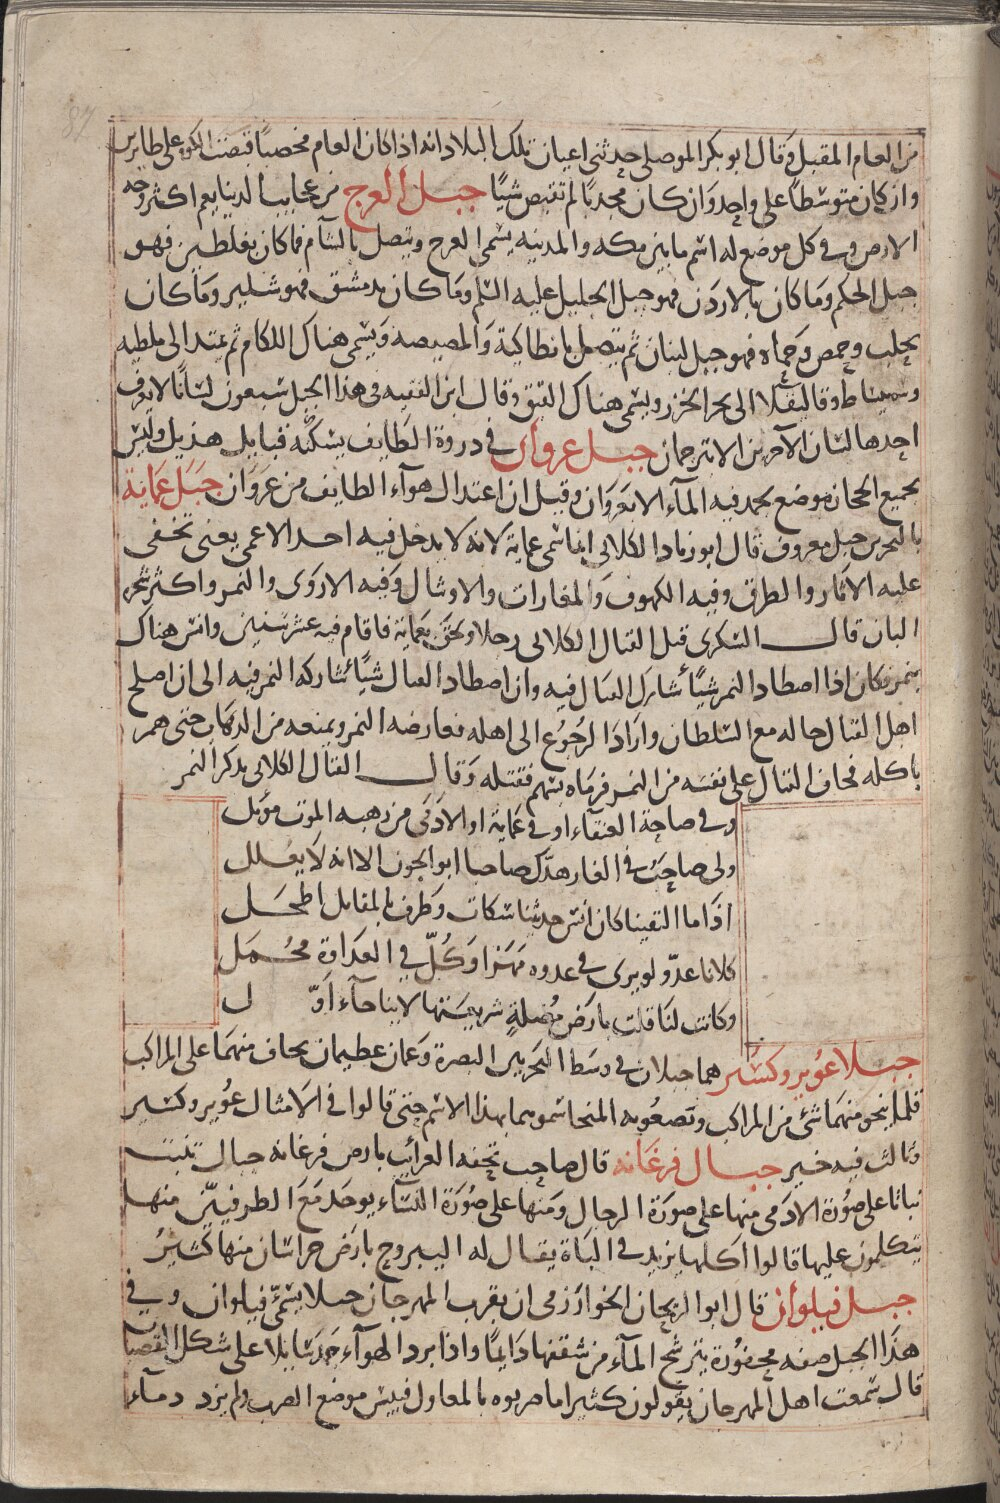 من العام المقبل وقال ابو بكر الموصلي حدثني اعيان تلك البلاد انه اذا كان العام مخصبًا قبضت الكوة على طايرين
وان كان متوسطًا على واحد وان كان مجدبًا لم تقبض شيًا جبل العرج من عجايب الدنيا يعم اكثر وجه
الارض وفي كل موضع له اسم ما بين مكه والمدينه يسمى العرج ويتصل بالشام فما كان بفلسطين فهو
جبل الحكم وما كان بالاردن فهو جبل الجليل عليه السلم وما كان بدمشق فهو شلير وما كان
بحلب وحمص وحماه فهو جبل لبنان ثم يتصل بانطاكية والمصيصه ويسمى هناك اللكام ثم يمتد الى ملطيه
وسميساط وقاليقلا الى بحر الخزر ويسمى هناك القبق وقال ابن الفقيه في هذا الجبل سبعون لسانًا لا يعرف
احدها لسان الآخرين الا بترجمان جبل عروان في دروة الطايف يسكنه قبايل هذيل وليس
بجميع الحجاز موضع يجمد فيه المآء الا بعروان وقيل ان اعتدال هوآء الطايف من عروان جبل عماية
بالبحرين جبل معروف قال ابو زياد الكلابي انما سمي عماية لانه لا يدخل فيه احد الا عمي يعني تخفى
عليه الاثار والطرق وفيه الكهوف والمغارات والاوشال وفيه الاروى والنمر واكثر شجره
البان قال السكري قتل القتال الكلابي رجلا ولحق بعماية فاقام فيه عشر سنين وانس هناك
بنمر فكان اذا اصطاد النمر شيًا شارك القتال فيه وان اصطاد القتال شيًا شاركه النمر فيه الى ان اصلح
اهل القتال حاله مع السلطان واراد الرجوع الى اهله فعارضه النمر ويمنعه من الذهاب حتى همر
باكله فخاف القتال على نفسه من النمر فرماه بسهم فقتله وقال القتال الكلابي يذكر النمر
وفي صاحة العنقاء او في عماية او الادمى من رهبه الموت موئل
ولي صاحب في الغار هدك صاحبا ابو الجون الا انه لا يعلل
اذا ما التقينا كان انس حديثنا سكات وطرف بالمقابل اطحل
كلانا عدو لو يرى في عدوه مهزا وكل في العداوة مجمل
وكانت لنا قلت بارض مضلةٍ شريعتنا لاينا جآء اول
جبلا عوير وكسير هما جبلان في وسط البحر بين البصرة وعمان عظيمان يخاف منهما على المراكب
قلما ينجو منهما شئ من المراكب وتصعوبه المنحا سموهما بهذا الاسم حتى قالوا في الامثال عوير وكسير
وثالث فيه خير جبال فرغانه قال صاحب تحفه الغرائب بارض فرغانه جبال تنبت
نباتا على صورة الادمي منها على صورة الرجال ومنها على صورة النسآء يوجد مع الطرقيين منها
يتكلمون عليها قالوا اكلها يزيد في الباة يقال له اليبروح بارض خراسان منها كثير
جبل فيلوان قال ابو الريحان الخوارزمي ان بقرب المهرجان جبلا يسمى فيلوان وفي
هذا الجبل صفه محفورة يترشح المآء من سقفها دايمًا واذا برد الهوآء جمد سايلا على شكل القضبان
قال سمعت اهل المهرجان يقولون كثيرا ما ضربوه بالمعاول فيبس موضع الضرب ولم يزد دمآء